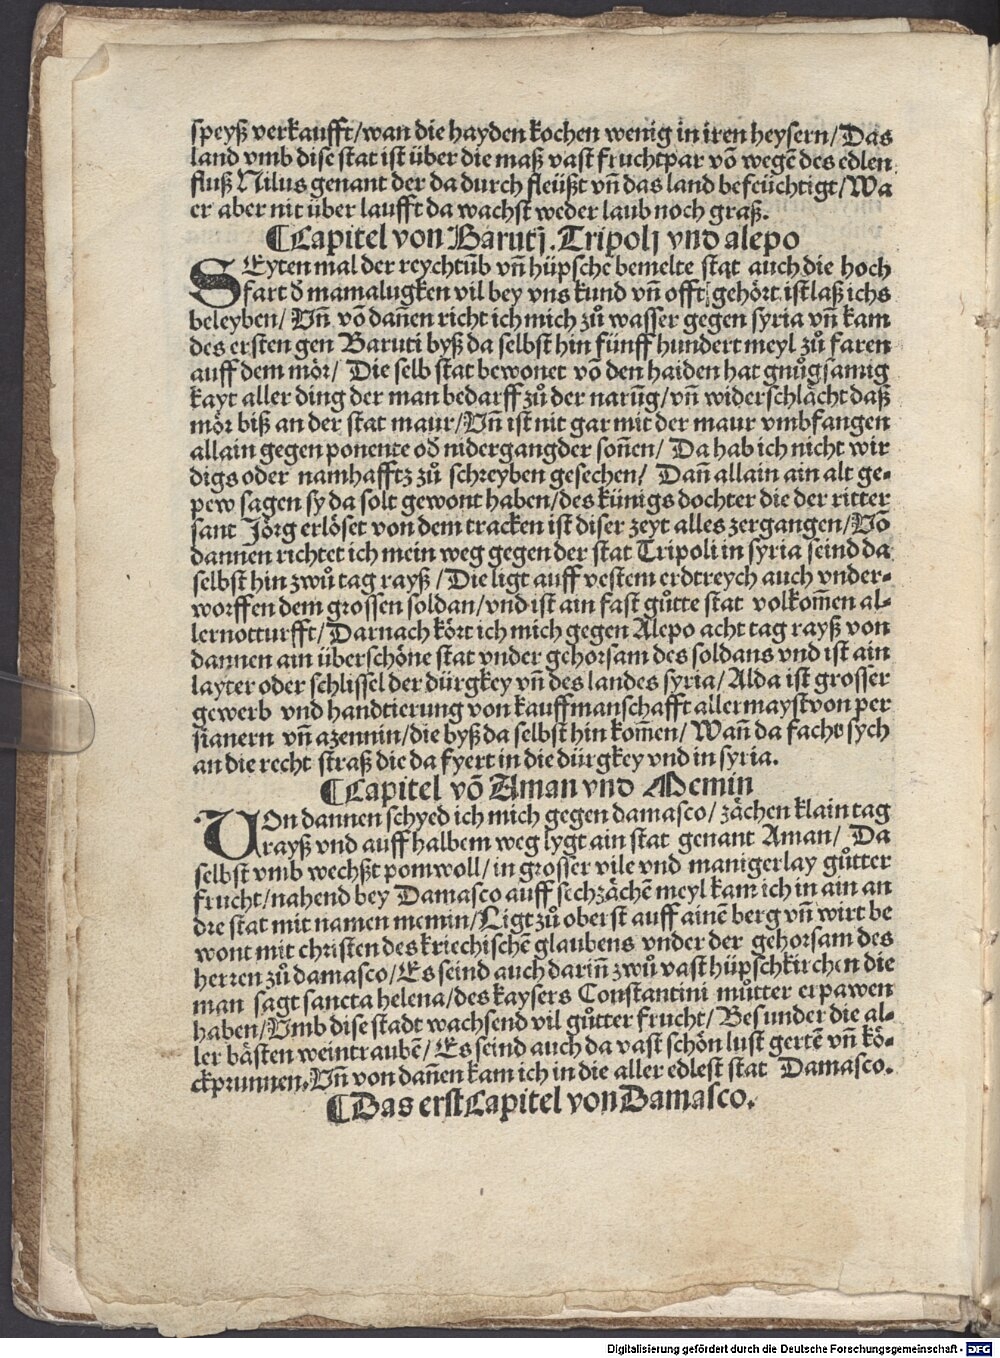 speyß verkaufft/wan die hayden kochen wenig in iren heysern/Das
land vmb dise stat ist über die maß vast fruchtpar võ wegẽ des edlen
fluß Nilus genant der da durch fleüßt vñ das land befeüchtigt/Wa
er aber nit über laufft da wachst weder laub noch graß.
¶Capitel von Baruti. Tripoli vnd alepo
SEyten mal der reychtũb vñ hüpsche bemelte stat auch die hoch
fart d̄ mamalugken vil bey vns kund vñ offt gehört ist laß ichs
beleyben/ Vñ võ dañen richt ich mich zů wasser gegen syria vñ kam
des ersten gen Baruti byß da selbst hin fünff hundert meyl zů faren
auff dem mör/ Die selb stat bewonet võ den haiden hat gnůgsamig
kayt aller ding der man bedarff zů der narũg/vñ widerschlächt daß
mör biß an der stat maur/Vñ ist nit gar mit der maur vmbfangen
allain gegen ponente od̄ nidergangder soñen/ Da hab ich nicht wir
digs oder namhafftz zů schreyben gesechen/ Dañ allain ain alt ge-
pew sagen sy da solt gewont haben/des künigs dochter die der ritter
sant Jörg erlöset von dem tracken ist diser zeyt alles zergangen/Võ
dannen richtet ich mein weg gegen der stat Tripoli in syria seind da
selbst hin zwů tag rayß/Die ligt auff vestem erdtreych auch vnder-
worffen dem grossen soldan/vnd ist ain fast gůtte stat volkom̃en al-
lernotturfft/Darnach kört ich mich gegen Alepo acht tag rayß von
dannen ain überschöne stat vnder gehorsam des soldans vnd ist ain
layter oder schlissel der dürgkey vñ des landes syria/Alda ist grosser
gewerb vnd handtierung von kauffmanschafft allermaystvon per
sianern vñ azennin/die byß da selbst hin kom̃en/ Wañ da facht sych
an die recht straß die da fyert in die dürgkey vnd in syria.
¶Capitel võ Aman vnd Memin
VOn dannen schyed ich mich gegen damasco/zächen klain tag
rayß vnd auff halbem weg lygt ain stat genant Aman/ Da
selbst vmb wechßt pomwoll/in grosser vile vnd manigerlay gůtter
frucht/nahend bey Damasco auff sechzächẽ meyl kam ich in ain an
dre stat mit namen memin/Ligt zů oberst auff ainẽ berg vñ wirt be
wont mit christen des kriechischẽ glaubens vnder der gehorsam des
herren zů damasco/Es seind auch dariñ zwů vast hüpschkirchen die
man sagt sancta helena/des kaysers Constantini můtter erpawen
haben/Vmb dise stadt wachsend vil gůtter frucht/Besunder die al-
ler bästen weintraubẽ/Es seind auch da vast schön lust gertẽ vñ kö-
ckprunnen.Vñ von dañen kam ich in die aller edlest stat Damasco.
¶Das erst Capitel von Damasco.
Digitalisierung gefördert durch die Deutsche Forschungsgemeinschaft - DFG